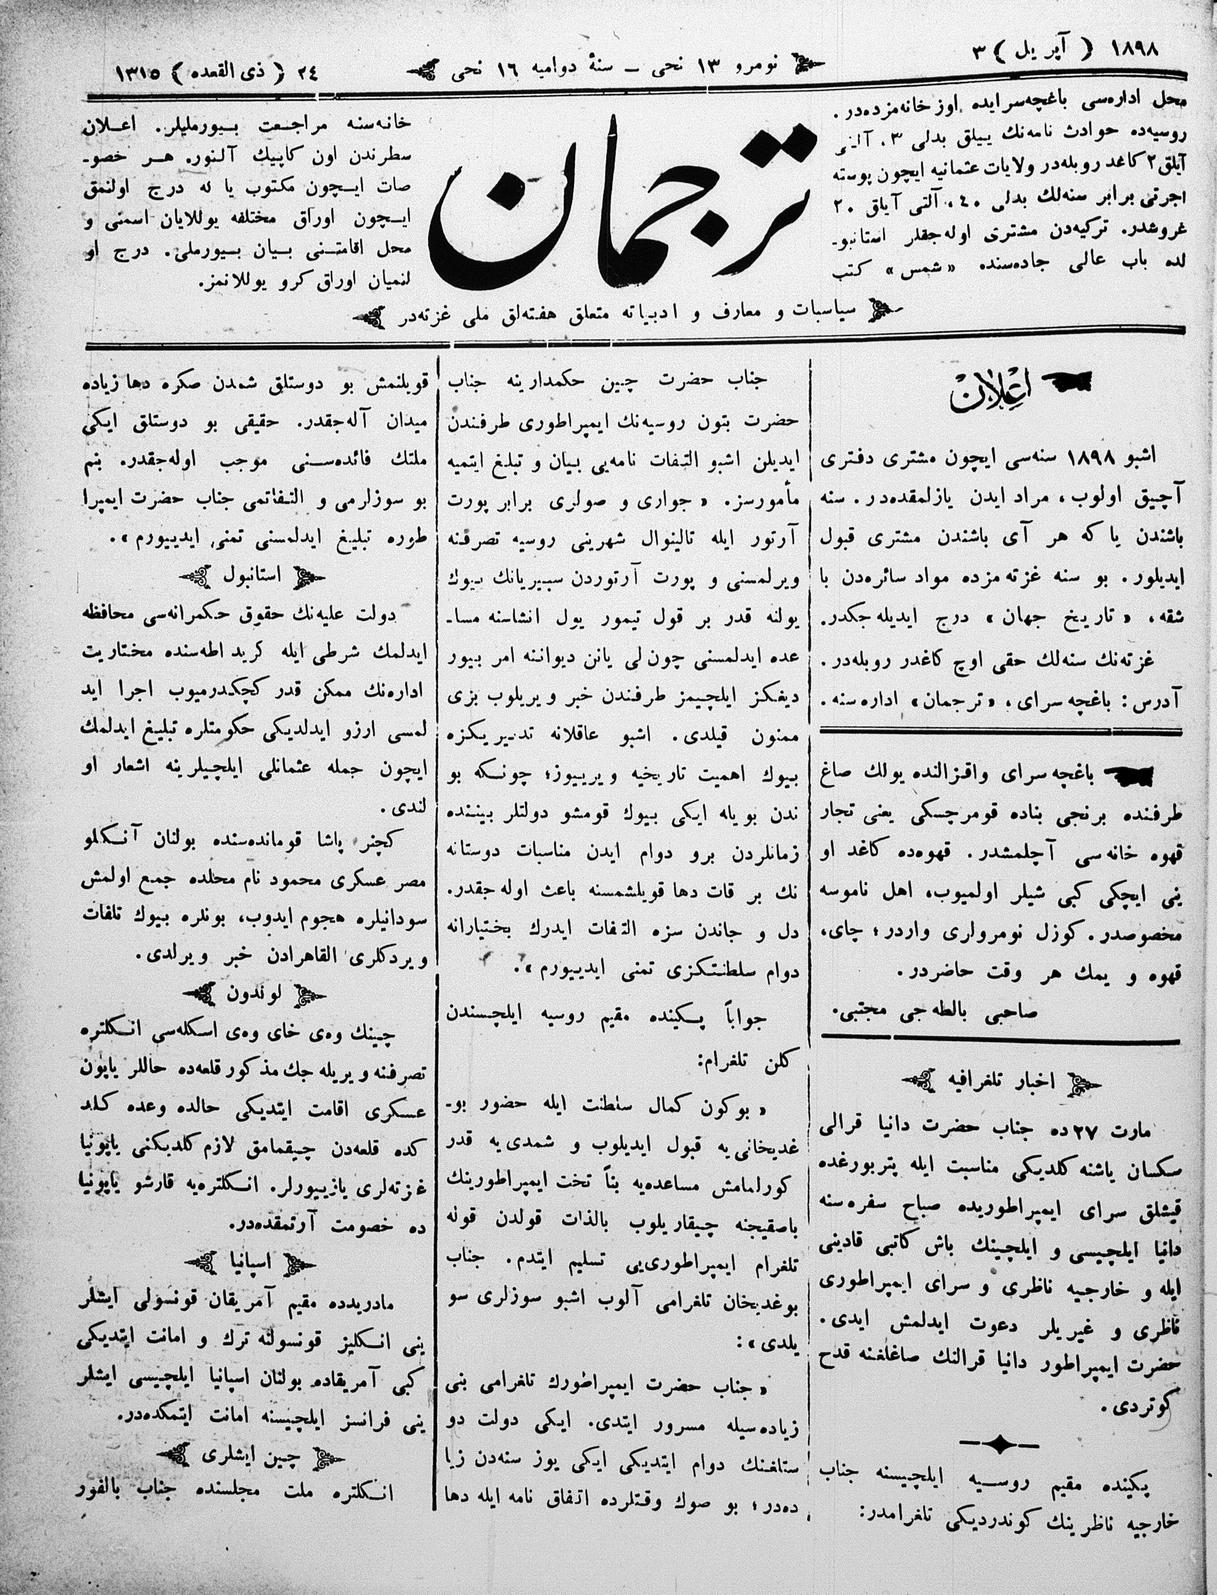 ١٨٩٨ ( آپریل ) ٣
نومرو ١٣ نحی – سنۀ دوامیه ١٦ نحی
٢٤ ( ذی القعده ) ١٣١٥
محل اداره‌سی باغچه‌سرایده اوز خانه‌مزده‌در.
روسیه‌ده حوادث نامه‌نك ییللق بدلی ٣، آلتی
آیلق ٢ کاغد روبله‌در ولایات عثمانیه ایچون پوسته
اجرتی برابر سنه‌لك بدلی ٤٠، آلتی آیلق ٢٠
غروشدر. ترکیه‌دن مشتری اوله‌جقلر استانبو-
لده باب عالی جاده‌سنده «شمس» کتب
ترجمان
خانه‌سنه مراجعت بیورملیلر. اعلان
سطرندن اون کاپیك آلنور. هر خصو-
صات ایچون مکتوب یا له درج اولنمق
ایچون اوراق مختلفه یوللایان اسمنی و
محل اقامتنی بیان بیورملی. درج او
لنمیان اوراق کرو یوللانمز.
سیاسیات و معارف و ادبیاته متعلق هفته‌لق ملی غزته‌در
اعلان
اشبو ١٨٩٨ سنه‌سی ایچون مشتری دفتری
آچیق اولوب، مراد ایدن یازلمقده‌در. سنه
باشندن یا که هر آی باشندن مشتری قبول
ایدیلور. بو سنه غزته‌مزده مواد سائره‌دن با
شقه، «تاریخ جهان» درج ایدیله‌جکدر.
غزته‌نك سنه‌لك حقی اوچ کاغدر روبله‌در.
آدرس: باغچه‌سرای، «ترجمان» اداره‌سنه.
باغچه‌سرای واقزالنده یولك صاغ
طرفنده برنجی بناده قومرچسکی یعنی تجار
قهوه خانه‌سی آچلمشدر. قهوه‌ده کاغد او
ینی ایچکی کبی شیلر اولمیوب، اهل ناموسه
مخصوصدر. کوزل نومرواری واردر؛ چای،
قهوه و یمك هر وقت حاضردر.
صاحبی بالطه‌جی مجتبی.
اخبار تلغرافیه
مارت ٢٧ ده جناب حضرت دانیا قرالی
سکسان یاشنه کلدیکی مناسبت ایله پتربورغده
قیشلق سرای ایمپراطوریده صباح سفره‌سنه
دانیا ایلچیسی و ایلچینك باش کاتبی قادینی
ایله و خارجیه ناظری و سرای ایمپراطوری
ناظری و غیریلر دعوت ایدلمش ایدی.
حضرت ایمپراطور دانیا قرالنك صاغلغنه قدح
کوتردی.
پکینده مقیم روسیه ایلچیسنه جناب
خارجیه ناظرینك کوندردیکی تلغرامدر:
جناب حضرت چین حکمدارینه جناب
حضرت بتون روسیه‌نك ایمپراطوری طرفندن
ایدیلن اشبو التفات نامه‌یی بیان و تبلغ ایتمیه
مأمورسز. «جواری و صولری برابر پورت
آرتور ایله تالینوال شهرینی روسیه تصرفنه
ویرلمسنی و پورت آرتوردن سیبریانك بیوك
یولنه قدر بر قول تیمور یول انشاسنه مسا-
عده ایدلمسنی چون‌لی یانن دیواننه امر بیور
دیغکز ایلچیمز طرفندن خبر ویریلوب بزی
ممنون قیلدی. اشبو عاقلانه تدبیریکزه
بیوك اهمیت تاریخیه ویرییوز؛ چونکه بو
ندن بویله ایکی بیوك قومشو دولتلر بیننده
زمانلردن برو دوام ایدن مناسبات دوستانه
نك بر قات دها قویلشمسنه باعث اوله‌جقدر.
دل و جاندن سزه التفات ایدرك بختیارانه
دوام سلطنتکزی تمنی ایدییورم».
جواباً پکینده مقیم روسیه ایلچسندن
کلن تلغرام:
«بوکون کمال سلطنت ایله حضور بو-
غدیخانی‌یه قبول ایدیلوب و شمدی‌یه قدر
کورلمامش مساعده‌یه بنأً تخت ایمپراطورینك
باصقیجنه چیقاریلوب بالذات قولدن قوله
تلغرام ایمپراطوری‌یی تسلیم ایتدم. جناب
بوغدیخان تلغرامی آلوب اشبو سوزلری سو
یلدی»:
«جناب حضرت ایمپراطورك تلغرامی بنی
زیاده‌سیله مسرور ایتدی. ایکی دولت دو
ستلغنك دوام ایتدیکی ایکی یوز سنه‌دن زیا
ده‌در؛ بو صوك وقتلرده اتفاق نامه ایله دها
قویلنمش بو دوستلق شمدن صکره دها زیاده
میدان آله‌جقدر. حقیقی بو دوستلق ایکی
ملتك فائده‌سنی موجب اوله‌جقدر. بنم
بو سوزلرمی و التفاتمی جناب حضرت ایمپرا
طوره تبلیغ ایدلمسنی تمنی ایدییورم».
استانبول
دولت علیه‌نك حقوق حکمرانه‌سی محافظه
ایدلمك شرطی ایله کرید اطه‌سنده مختاریت
اداره‌نك ممکن قدر کچکدرمیوب اجرا اید
لمسی ارزو ایدلدیکی حکومتلره تبلیغ ایدلمك
ایچون جمله عثمانلی ایلچیلرینه اشعار او
لندی.
کچنر پاشا قومانده‌سنده بولنان آنکلو
مصر عسکری محمود نام محلده جمع اولمش
سودانیلره هجوم ایدوب، بونلره بیوك تلفات
ویردکلری القاهرادن خبر ویرلدی.
لوندون
چینك وه‌ی خای وه‌ی اسکله‌سی انکلتره
تصرفنه ویریله‌جك مذکور قلعه‌ده حاللر یاپون
عسکری اقامت ایتدیکی حالده وعده کلد
کده قلعه‌دن چیقمامق لازم کلدیکنی یاپونیا
غزته‌لری یازییورلر. انکلتره‌یه قارشو یاپونیا
ده خصومت آرتمقده‌در.
اسپانیا
مادریدده مقیم آمریقان قونسولی ایشلر
ینی انکلیز قونسولنه ترك و امانت ایتدیکی
کبی آمریقاده بولنان اسپانیا ایلچیسی ایشلر
ینی فرانسز ایلچیسنه امانت ایتمکده‌در.
چین ایشلری
انکلتره ملت مجلسنده جناب بالفور